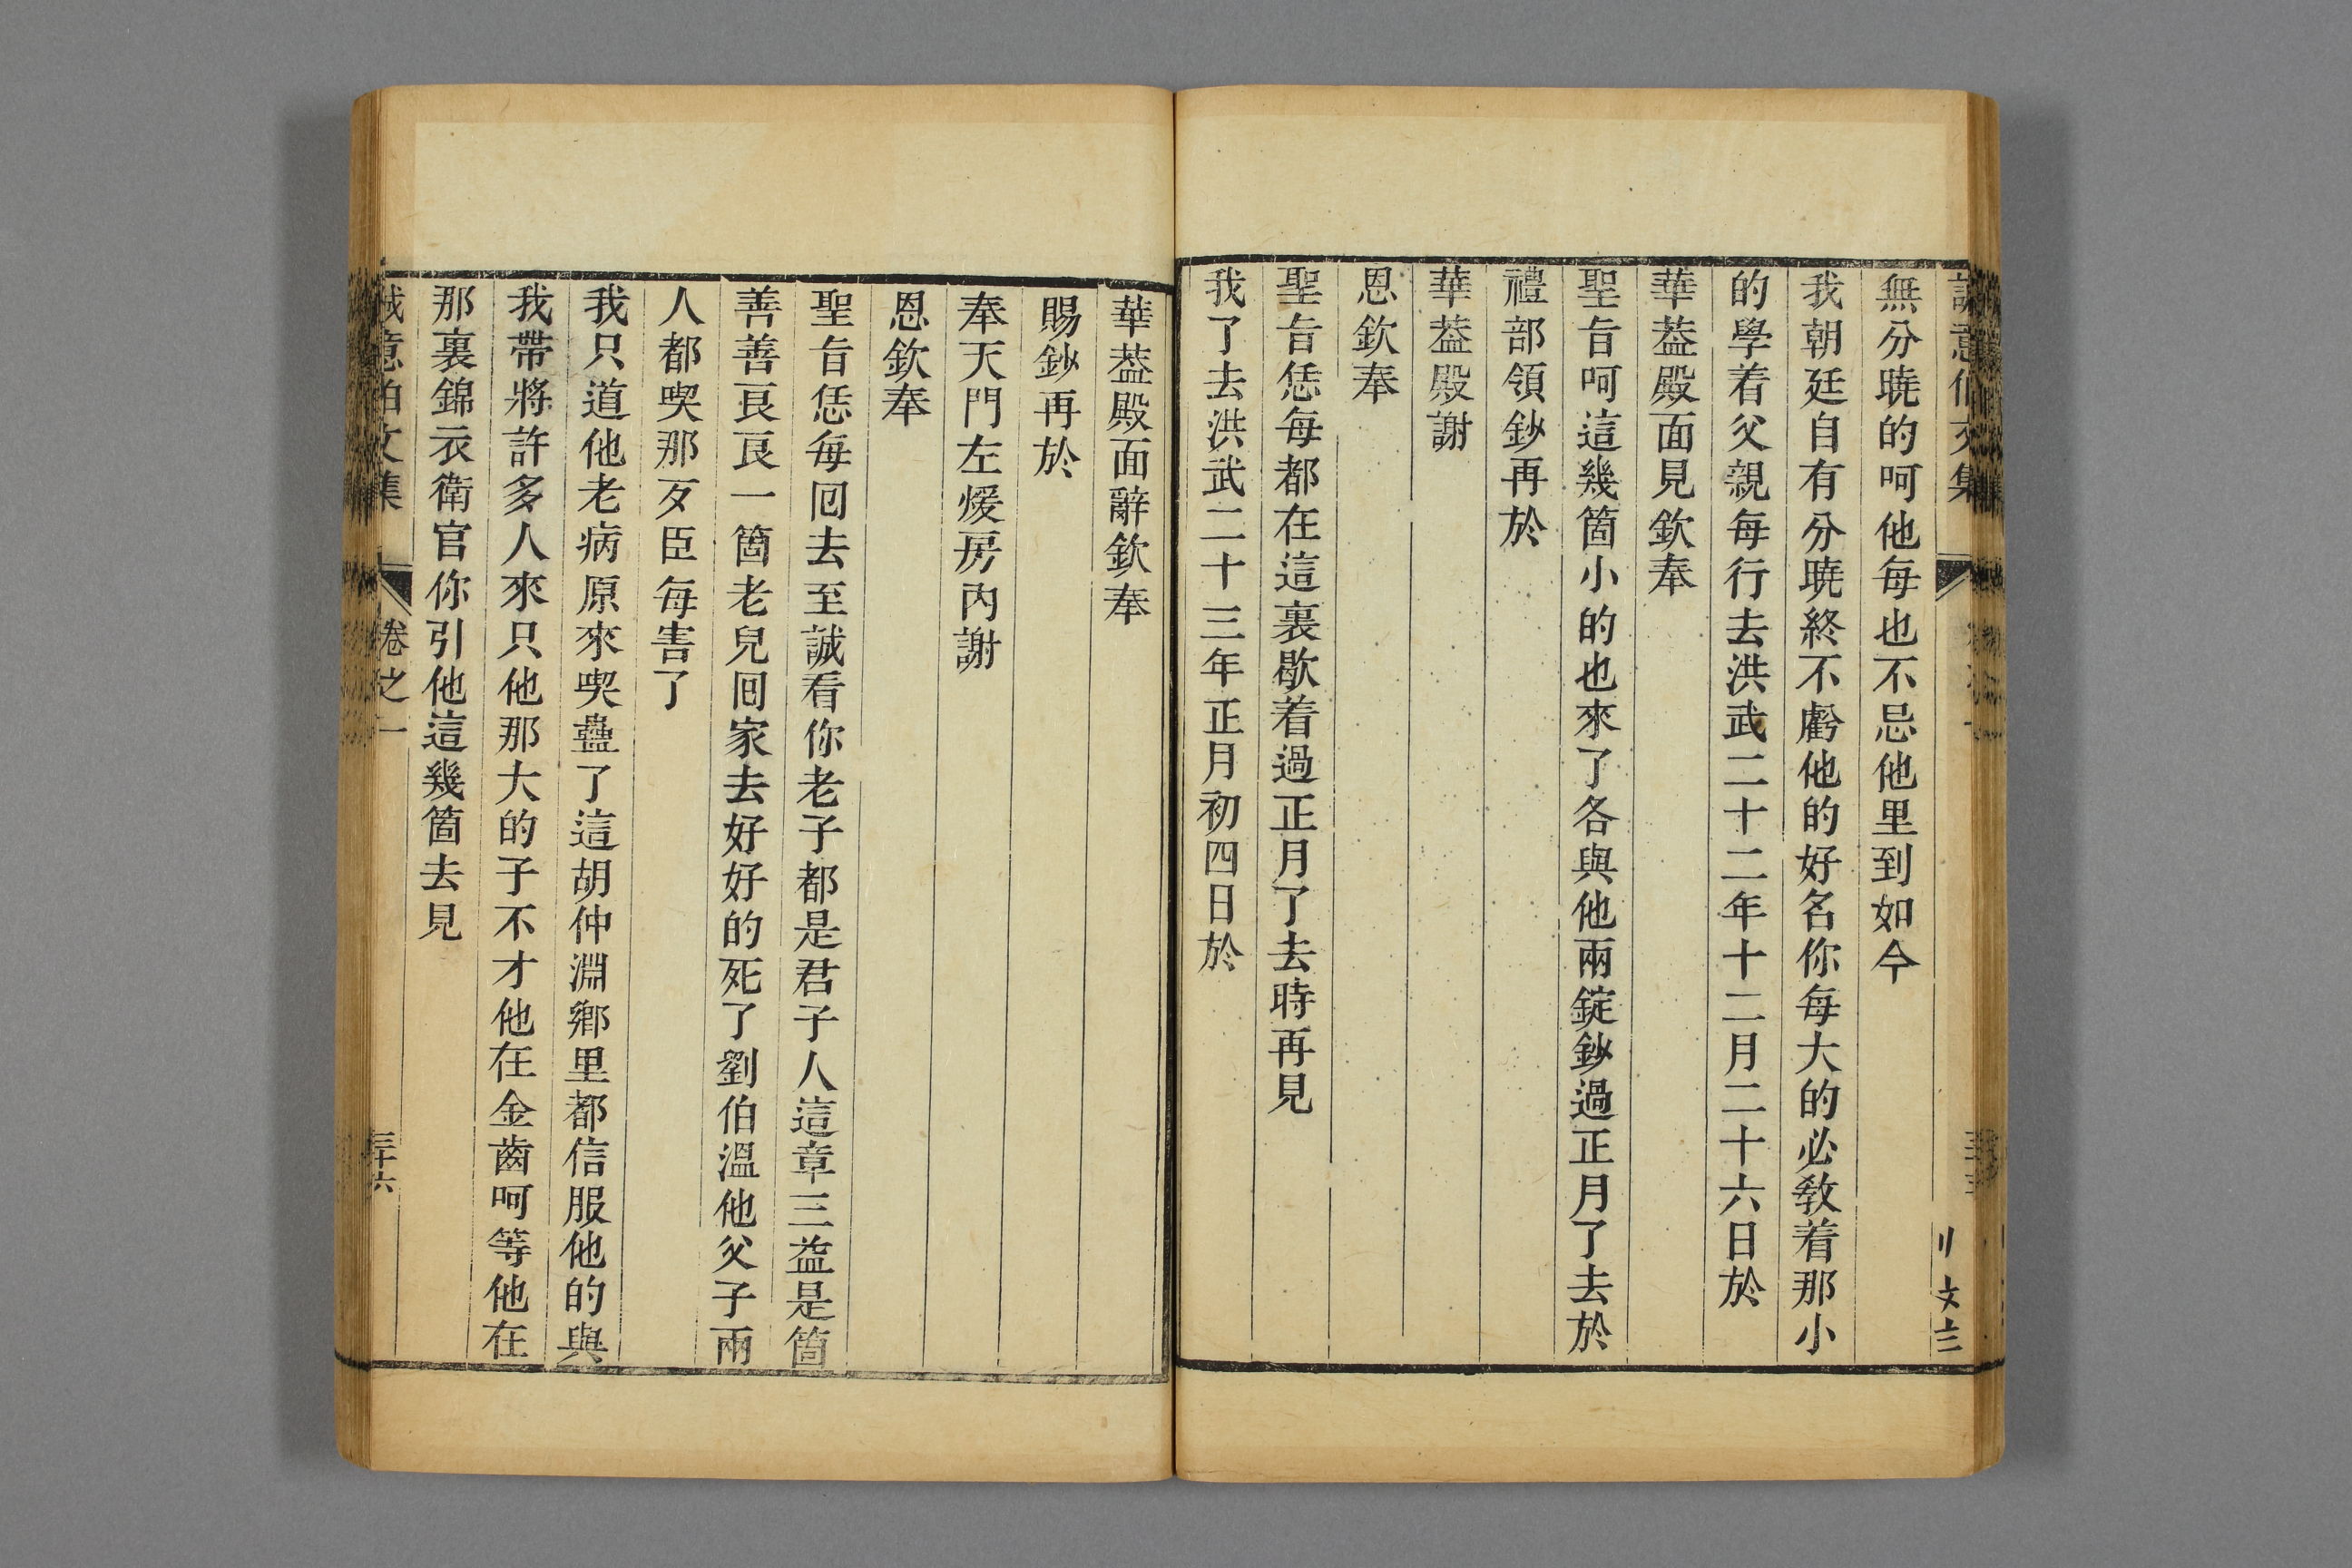 無分曉的呵他每也不忌他里到如今
我朝廷自有分曉終不虧他的好名你每大的必敎着那小
的學着父親每行去洪武二十二年十二月二十六日於
華葢殿面見欽奉
聖旨呵這幾箇小的也來了各與他兩錠鈔過正月了去於
禮部領鈔再於
華葢殿謝
恩欽奉
聖旨恁每都在這裏歇着過正月了去時再見
我了去洪武二十三年正月初四日於
華葢殿面辭欽奉
賜鈔再於
奉天門左煖房內謝
恩欽奉
聖旨恁每囘去至誠看你老子都是君子人這章三益是箇
善善良良一箇老兒囘家去好好的死了劉伯溫他父子兩
人都喫那歹臣每害了
我只道他老病原來喫蠱了這胡仲淵鄉里都信服他的與
我帶將許多人來只他那大的子不才他在金齒呵等他在
那裏錦衣衛官你引他這幾箇去見
誠意伯文集 卷之一 三十六